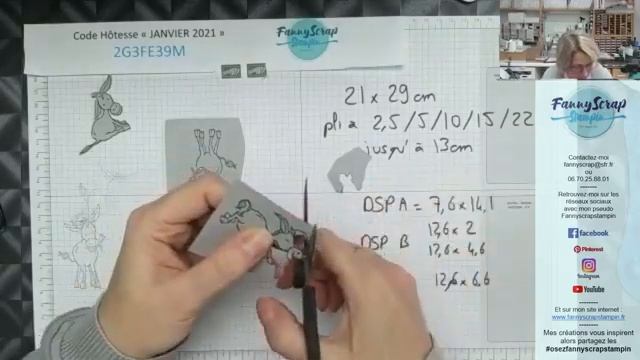 Code Hôtesse « JANVIER 2021 »
2G3FE39M
FannyScrap
Stampin
21 x 29 cm
pli à 2,5/5/10/15/22
jusqu'à 13cm
DSP A = 7,6 x 14,1
12,6 x 2
DSP B
12,6 x 4,6
12,6 x 6,6
FannyScrap
Stampin
Contactez-moi
fannyscrap@sfr.fr
ou
06.70.25.88.01
----------
Retrouvez-moi sur les
réseaux sociaux
avec mon pseudo
Fannyscrapstampin
facebook
Pinterest
Instagram
YouTube
----------
Et sur mon site internet :
www.fannyscrapstampin.fr
----------
Mes créations vous inspirent
alors partagez les
#osezfannyscrapstampin